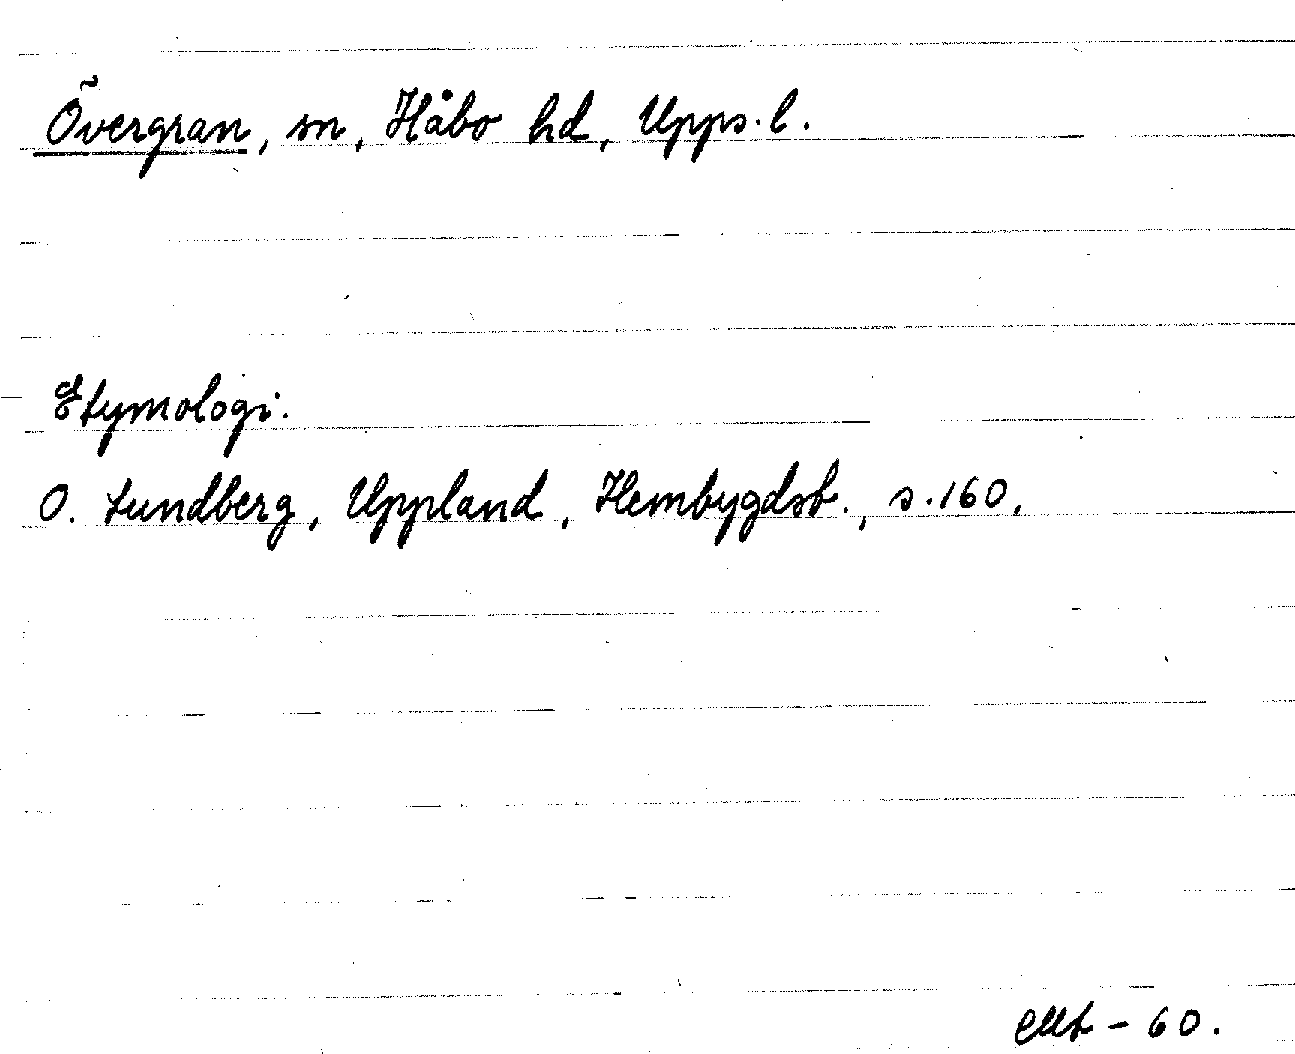 Övergran, sn, Håbo hd, Upps. l.
Etymologi.
O. Lundberg, Uppland, Hembygdsb., s. 160.
-60.